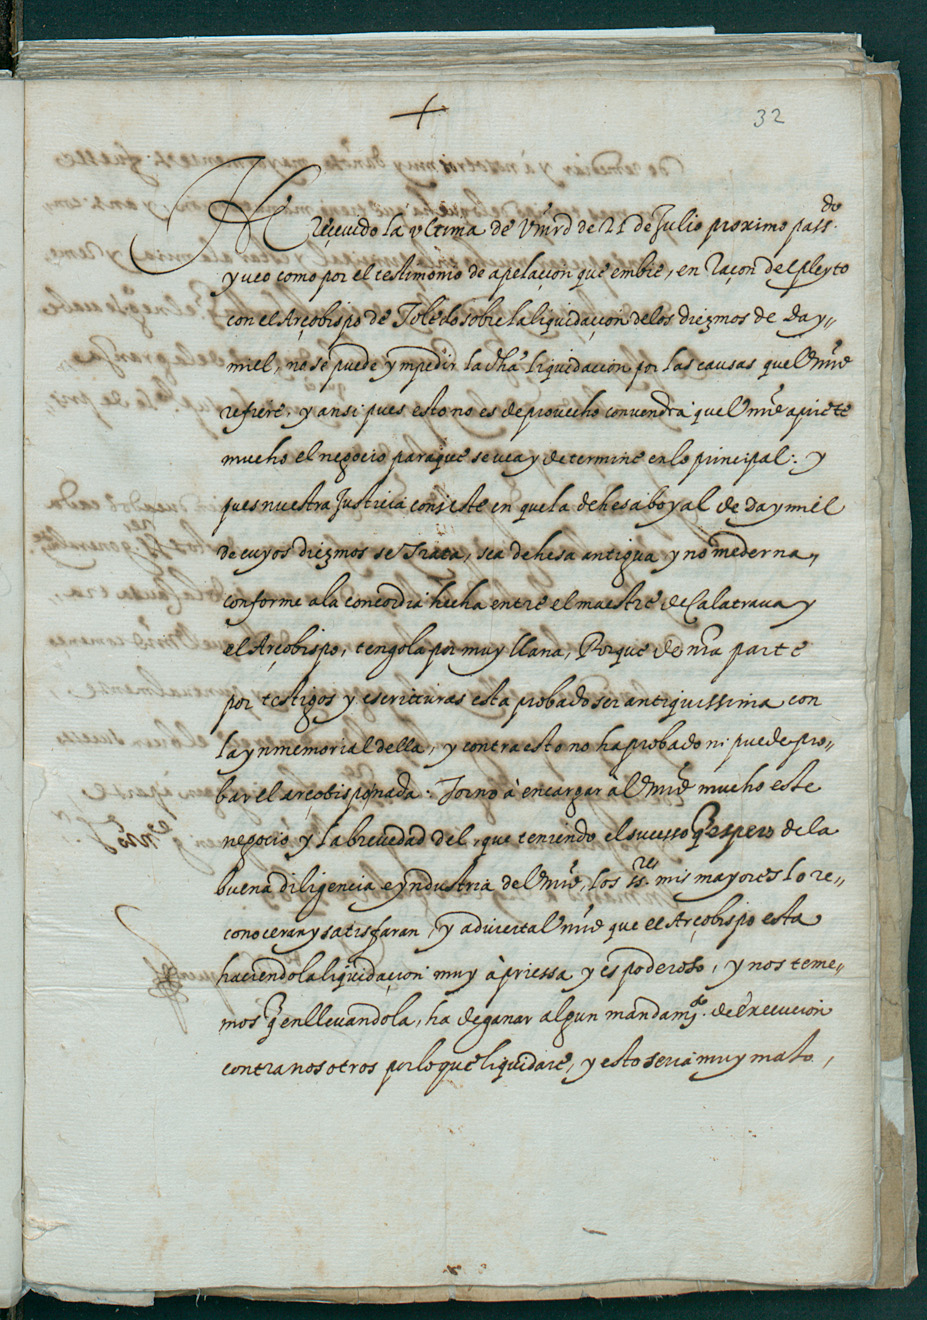 +
32
Hẽ reçeuido la vltima de Vmrd de 21 de Julio proximo pass.do
y veo como por el testimonio de apelaçion que embie, en raçon del pleyto
con el Arçobispo de Toledo sobre la liquidaçion de los diezmos de Day„
miel, no se puede ympedir la dha liquidaçion por las causas que Vmrd
refiere. y ansi pues esto no es de prouecho conuendra que Vmrd apriete
mucho el negocio para que se vea y determine en lo principal: y
pues nuestra Justicia consiste en que la dehesa boyal de Daymiel
de cuyos diezmos se Trata, sea dehesa antigua y no moderna,
conforme a la concordia hecha entre el maestre de Calatraua y
el Arçobispo, tengola por muy llana, Porque de nra parte
por testigos y escrituras esta probado ser antiquissima con
la ynmemorial della, y contra esto no ha probado ni puede pro„
bar el arçobispo nada. Torno à encargar a Vmrd mucho este
negocio y la breuedad del, que teniendo el sucesso q̃ espero de la
buena diligencia e yndustria de Vmrd, los ss.res mis mayores lo re„
conoceran y satisfaran, y aduierta Vmrd que el Arçobispo esta
haciendo la liquidaçion muy à priessa y es poderoso, y nos teme„
mos q̃ en lleuandola, ha de ganar algun mandam.to de Execucion
contra nosotros por lo que liquidare, y esto seria muy malo,